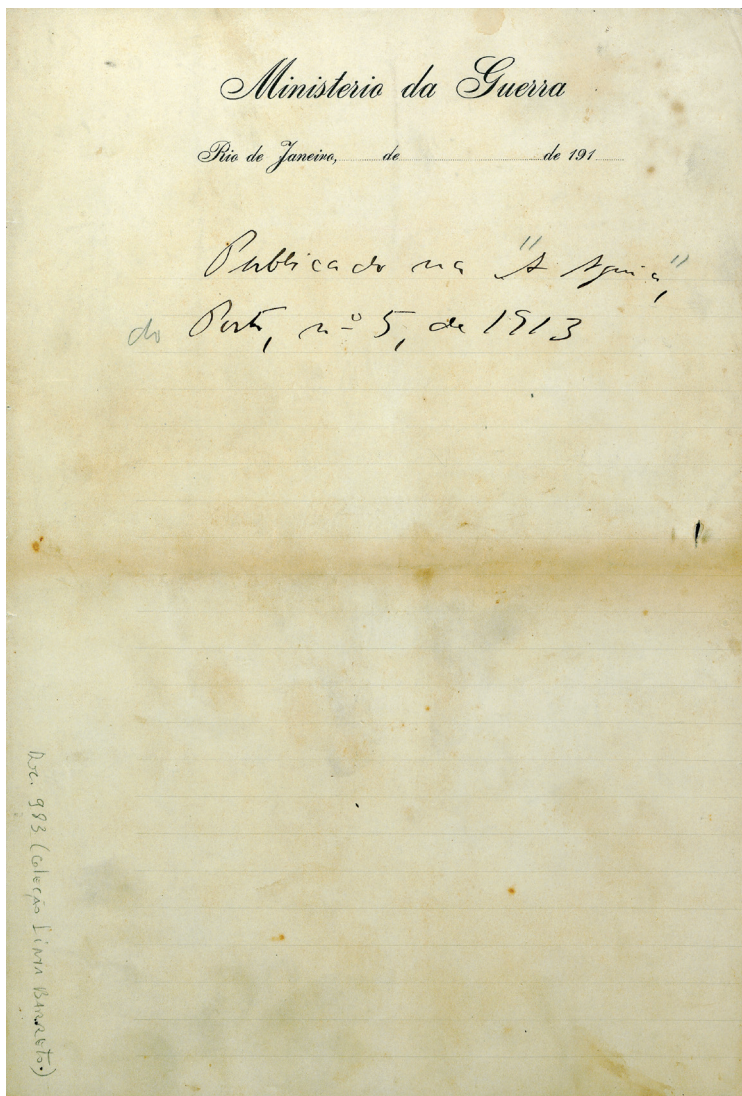 Ministerio da Guerra
Rio de Janeiro, de de 191
Publicado na "A Aguia",
do Porto, nº 5, de 1913
Doc. 983 (Coleção Lima Barreto.)